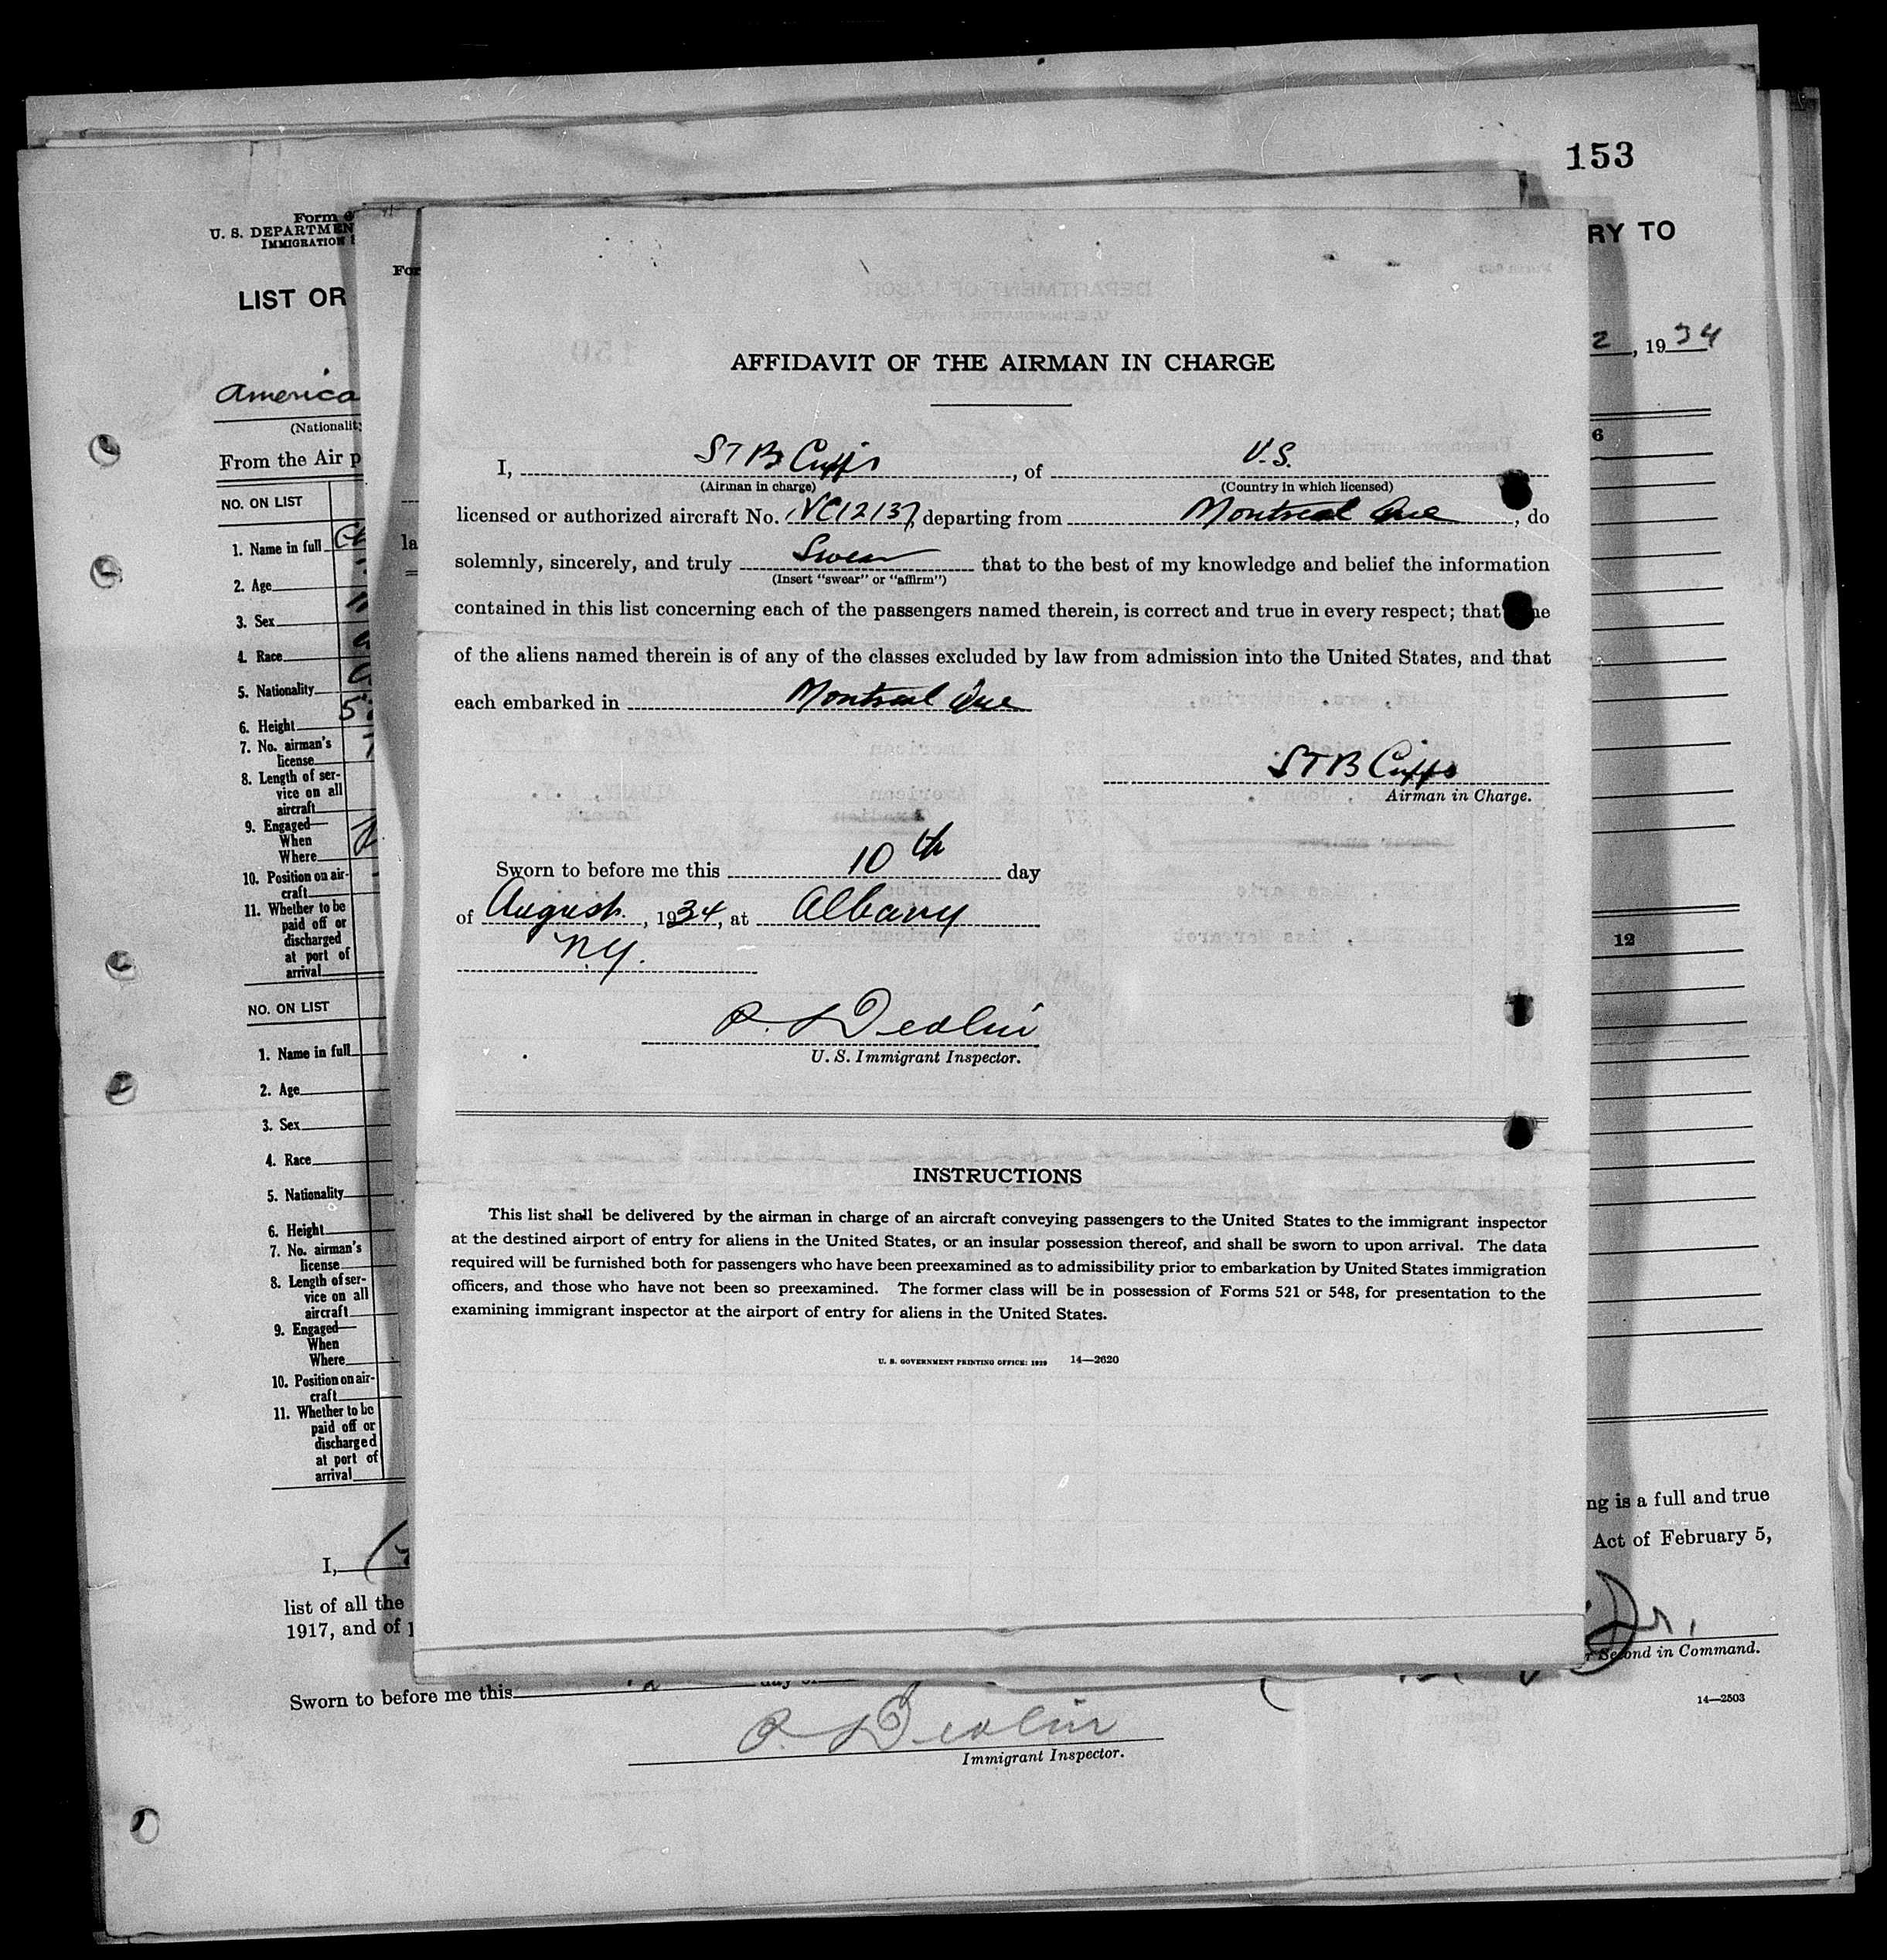 153
Form
U. S. DEPARTMEN
IMMIGRATION
LIST OR
RY TO
2, 1934
America
(Nationalit
From the Air p
For
la
NO. ON LIST
6
1. Name in full
2. Age
3. Sex
4. Race
5. Nationality
6. Height
5
7. No. airman's
license
8. Length of ser-
vice on all
aircraft
9. Engaged—
When
Where
10. Position on air-
craft
11. Whether to be
paid off or
discharged
at port of
arrival
NO. ON LIST
12
1. Name in full
2. Age
3. Sex
4. Race
5. Nationality
6. Height
7. No. airman's
license
8. Length of ser-
vice on all
aircraft
9. Engaged—
When
Where
10. Position on air-
craft
11. Whether to be
paid off or
discharged
at port of
arrival
AFFIDAVIT OF THE AIRMAN IN CHARGE
I, STB Cupps, of U.S.
(Airman in charge) (Country in which licensed)
licensed or authorized aircraft No. NC12137, departing from Montreal Que, do
solemnly, sincerely, and truly Swear that to the best of my knowledge and belief the information
(Insert "swear" or "affirm")
contained in this list concerning each of the passengers named therein, is correct and true in every respect; that ne
of the aliens named therein is of any of the classes excluded by law from admission into the United States, and that
each embarked in Montreal Que
STB Cupps
Airman in Charge.
Sworn to before me this 10th day
of August, 1934, at Albany
N.Y.
U. S. Immigrant Inspector.
INSTRUCTIONS
This list shall be delivered by the airman in charge of an aircraft conveying passengers to the United States to the immigrant inspector
at the destined airport of entry for aliens in the United States, or an insular possession thereof, and shall be sworn to upon arrival. The data
required will be furnished both for passengers who have been preexamined as to admissibility prior to embarkation by United States immigration
officers, and those who have not been so preexamined. The former class will be in possession of Forms 521 or 548, for presentation to the
examining immigrant inspector at the airport of entry for aliens in the United States.
U. S. GOVERNMENT PRINTING OFFICE: 1929 14—2620
ng is a full and true
I,
Act of February 5,
list of all the
1917, and of
Jr.
Second in Command.
Sworn to before me this day of
14—2503
Immigrant Inspector.